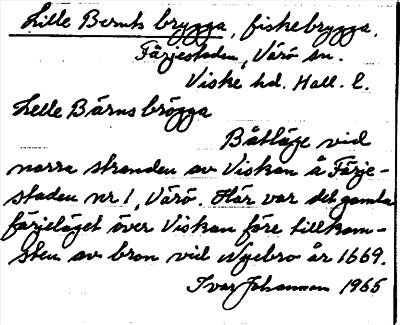 Lille Bernts brygga, fiskebrygga.
Färjestaden, Värö sn.
Viske hd. Hall. l.
Lelle Bärns brögga
Båtläge vid
norra stranden av Viskan å Färje-
staden nr 1, Värö. Här var det gamla
färjeläget över Viskan före tillkom-
sten av bron vid Nyebro år 1669.
Ivar Johansson 1965